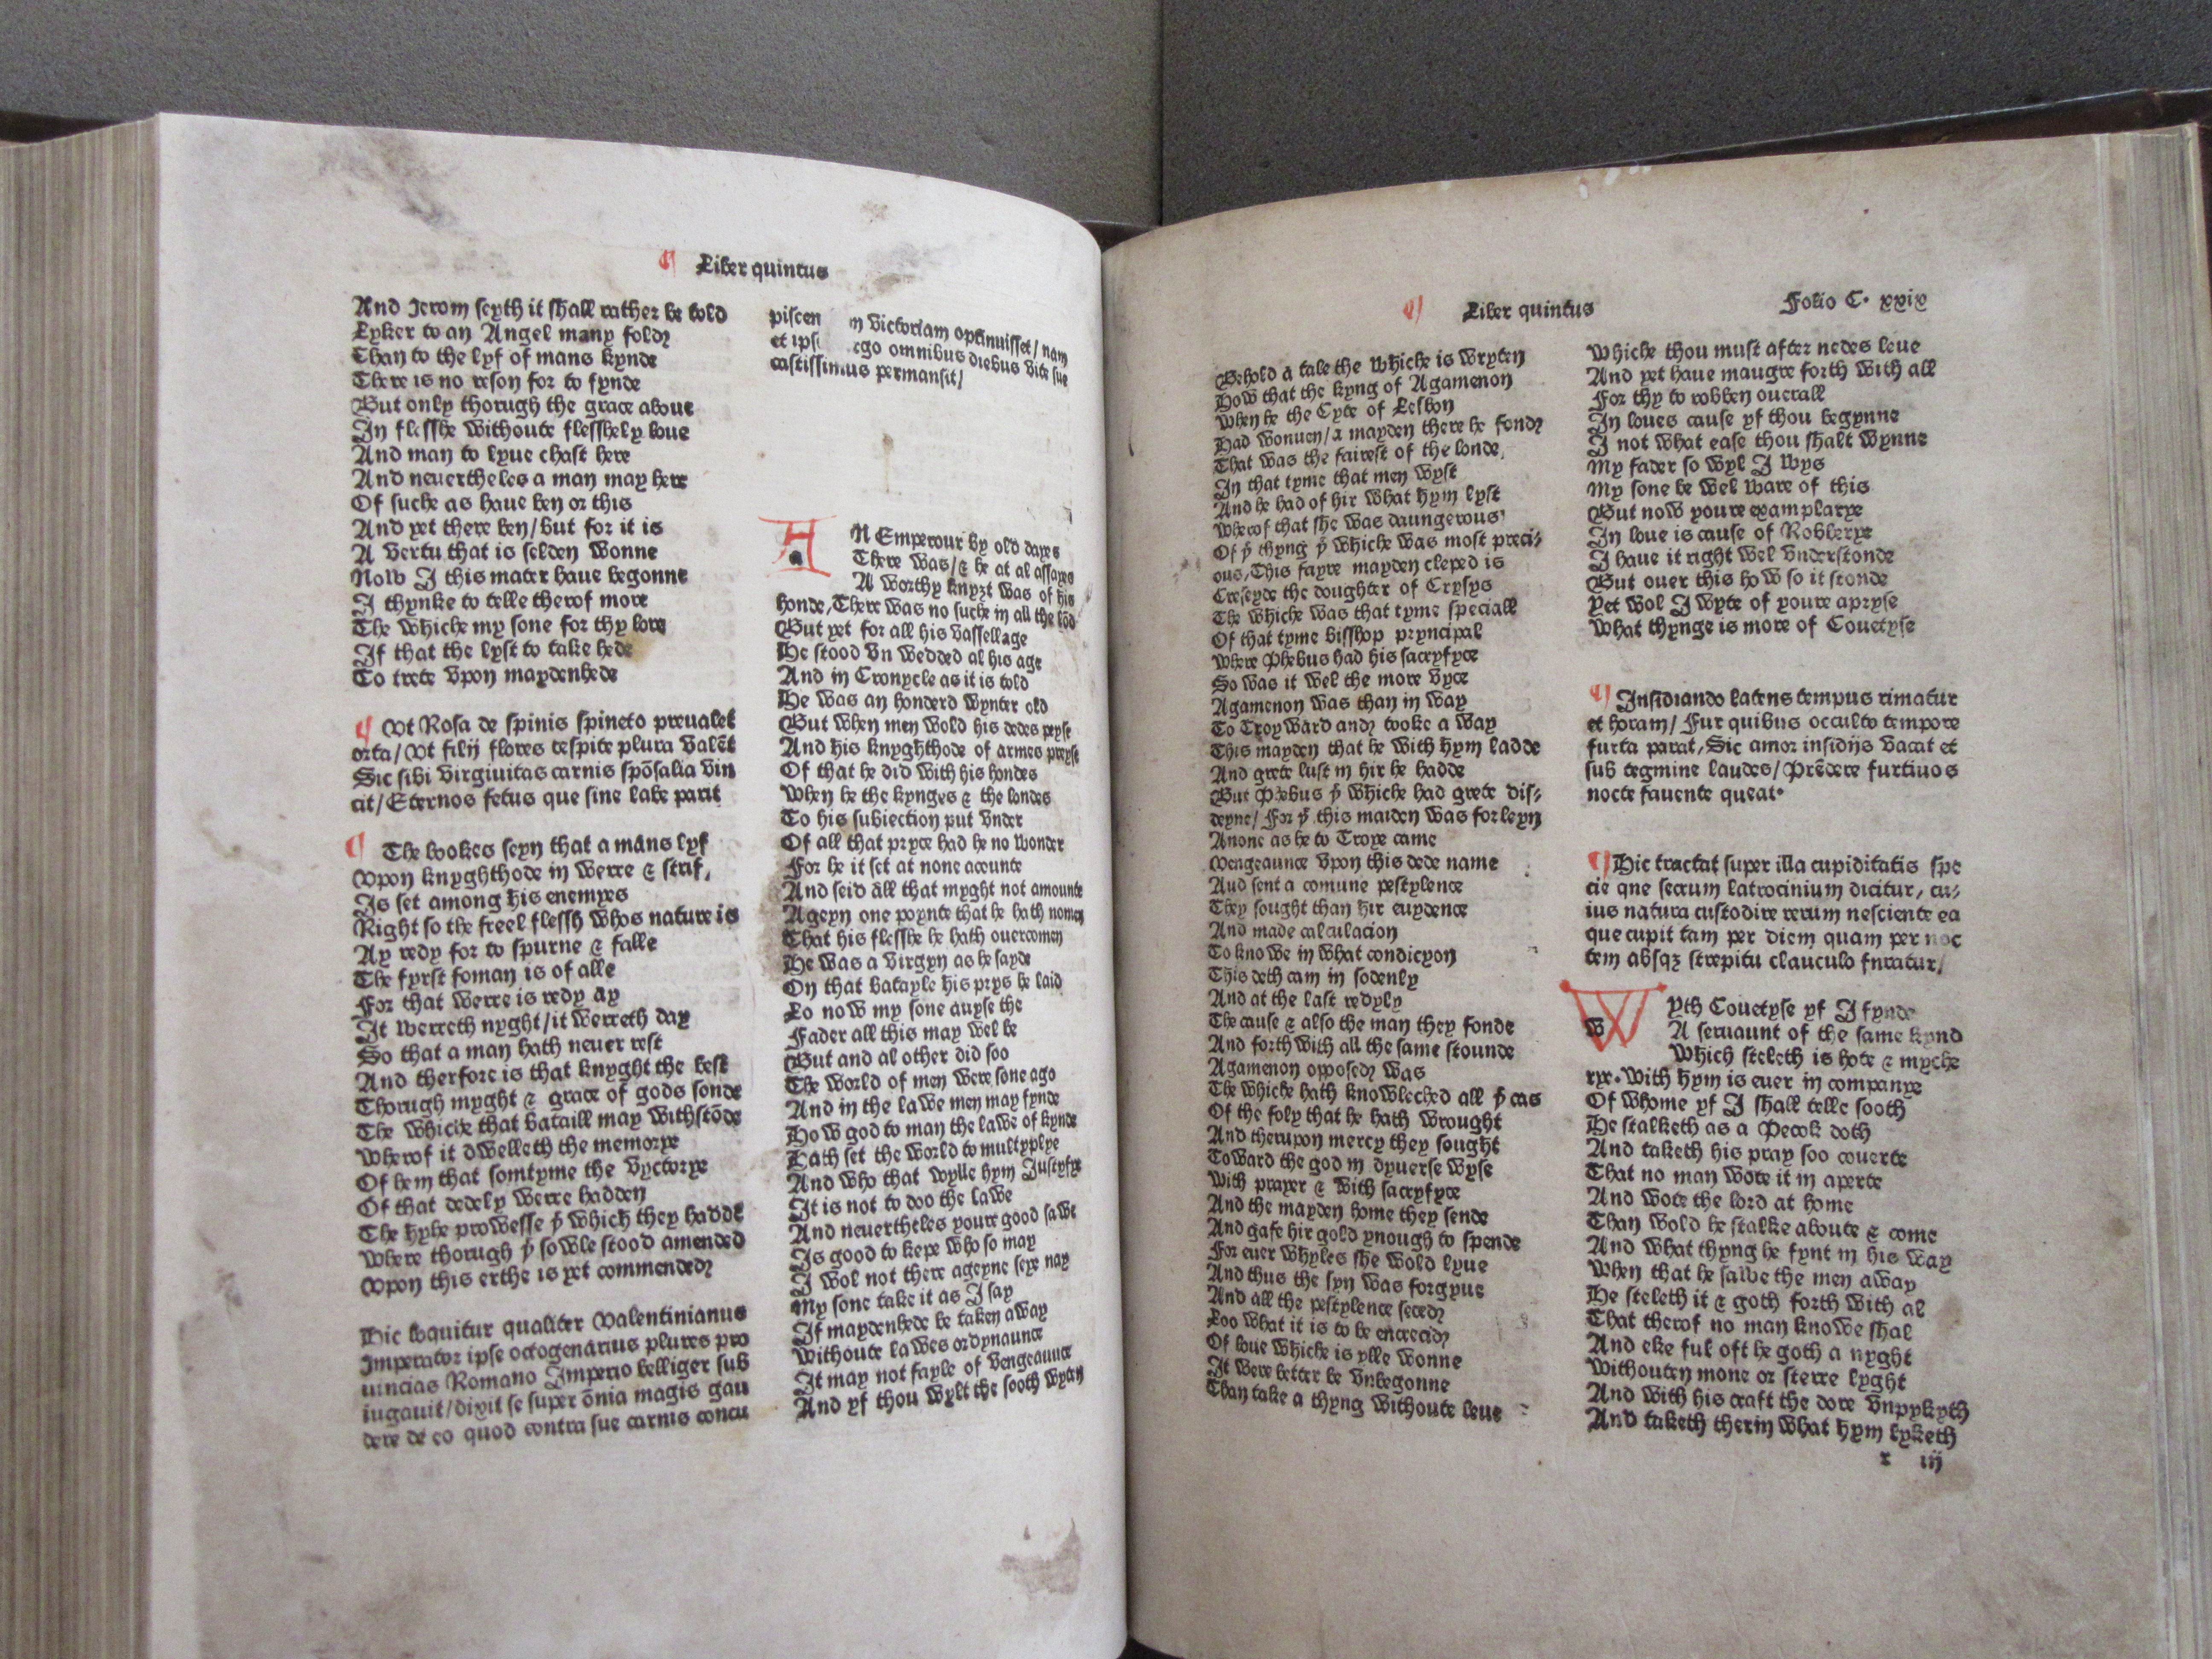 Liber quintus
And Jerom seyth it shall rather be told
Lyker to an Angel many fold
Than to the lyf of mans kynde
There is no reson for to fynde
But only thorugh the grace aboue
In flesshe withoute flesshely loue
And man to lyue chast here
And neuertheles a man may here
Of suche as haue ben or this
And yet there ben/but for it is
A vertu that is selden wonne
Now I this mater haue begonne
I thynke to telle therof more
The whiche my sone for thy lore
If that the lyst to take hede
To trete vpon maydenhede
¶ Vt Rosa de spinis spineto preualet
orta/Vt filij flores cespite plura valēt
Sic sibi virgiuitas carnis spōsalia vin
cit/Eternos fetus que sine labe parit
¶ The bookes seyn that a mans lyf
Vpon knyghthode in werre & strif,
Is set among his enemyes
Right so the freel flessh whos nature is
Ay redy for to spurne & falle
The fyrst foman is of alle
For that werre is redy ay
It werreth nyght/it werreth day
So that a man hath neuer rest
And therfore is that knyght the best
Thorugh myght & grace of gods sonde
The whiche that bataill may withstōde
Wherof it dwelleth the memorye
Of hem that somtyme the vyctorye
Of that dedely werre hadden
The hyhe prowesse þͭ which they hadde
Where thorugh þͤ sowle stood amended
Vpon this erthe is yet commended
Hic loquitur qualiter Valentinianus
Imperator ipse octogenarius plures pro
uincias Romano Imperio belliger sub
iugauit/dixit se super ōnia magis gau
dere de eo quod contra sue carnis concu
piscen m victoriam optinuisset/nam
et ips ego omnibus diebus vite sue
castissimus permansit/
AN Emperour by old dayes
There was/& he at al assayes
A worthy knyȝt was of his
honde, There was no suche in all the lōd
But yet for all his vassellage
He stood vn wedded al his age
And in Cronycle as it is told
He was an honderd wynter old
But when men wold his dedes peyse
And his knyghthode of armes preyse
Of that he did with his hondes
When he the kynges & the londes
To his subiection put vnder
Of all that pryce had he no wonder
For he it set at none acounte
And seid all that myght not amounte
Ageyn one poynte that he hath nomen
That his flesshe he hath ouercomen
He was a virgyn as he sayde
On that batayle his prys he laid
Lo now my sone auyse the
Fader all this may wel be
But and al other did soo
The world of men were sone ago
And in the lawe men may fynde
How god to man the lawe of kynde
Hath set the world to multyplye
And who that wylle hym Justyfye
It is not to doo the lawe
And neuertheles youre good sawe
Is good to kepe who so may
I wol not there ageyne seye nay
My sone take it as I say
If maydenhede be taken away
Withoute lawes ordynaunce
It may not fayle of vengeaunce
And yf thou wylt the sooth wyten
Liber quintus
Folio C. xxix
Behold a tale the whiche is wryten
How that the kyng of Agamenon
When he the Cyte of Lesbon
Had wonuen/a mayden there he fond
That was the fairest of the londe,
In that tyme that men wyst
And he had of hir what hym lyst
Wherof that she was daungerous
Of þͭ thyng þͭ whiche was most preci-
ous, This fayre mayden cleped is
Creseyde the doughter of Crysys
The whiche was that tyme speciall
Of that tyme bisshop pryncipal
Where Phebus had his sacryfyce
So was it wel the more vyce
Agamenon was than in way
To Troyward and tooke a way
This mayden that he with hym ladde
And grete lust in hir he hadde
But Phebus þͭ whiche had grete dis-
deyne/For þͭ this maiden was forleyn
Anone as he to Troye came
Vengeaunce vpon this dede name
Aud sent a comune pestylence
They sought than hir euydence
And made calculacion
To knowe in what condicyon
This deth cam in sodenly
And at the last redyly
The cause & also the man they fonde
And forth with all the same stounde
Agamenon opposed was
The whiche hath knowleched all þͤ cas
Of the foly that he hath wrought
And therupon mercy they sought
Toward the god in dyuerse wyse
With prayer & with sacryfyce
And the mayden home they sende
And gafe hir gold ynough to spende
For euer whyles she wold lyue
And thus the syn was forgyue
And all the pestylence seced
Loo what it is to be encreced
Of loue whiche is ylle wonne
It were better be vnbegonne
Than take a thyng withoute leue
Whiche thou must after nedes leue
And yet haue maugre forth with all
For thy to robben ouerall
In loues cause yf thou begynne
I not what ease thou shalt wynne
My fader so wyl I wys
My sone be wel ware of this
But now youre examplarye
In loue is cause of Robberye
I haue it right wel vnderstonde
But ouer this how so it stonde
Yet wol I wyte of youre apryse
What thynge is more of Couetyse
¶ Insidiando latens tempus rimatur
et horam/Fur quibus occulto tempore
furta parat, Sic amor insidijs vacat et
sub tegmine laudes/Prēdere furtiuos
nocte fauente queat.
¶ Hic tractat super illa cupiditatis spe
cie qne secrum latrocinium dicitur, cu-
ius natura custodire rerum nesciente ea
que cupit tam per diem quam per noc
tem absqȝ strepitu clauculo fnratur,
WYth Couetyse yf I fynde
A seruaunt of the same kynd
Which steleth is hote & myche
rye. With hym is euer in companye
Of whome yf I shall telle sooth
He stalketh as a Pecok doth
And taketh his pray soo couerte
That no man wote it in aperte
And wote the lord at home
Than wold he stalke aboute & come
And what thyng he fynt in his way
When that he sawe the men away
He steleth it & goth forth with al
That therof no man knowe shal
And eke ful oft he goth a nyght
Withouten mone or sterre lyght
And with his craft the dore vnpyketh
And taketh therin what hym lyketh
r iij